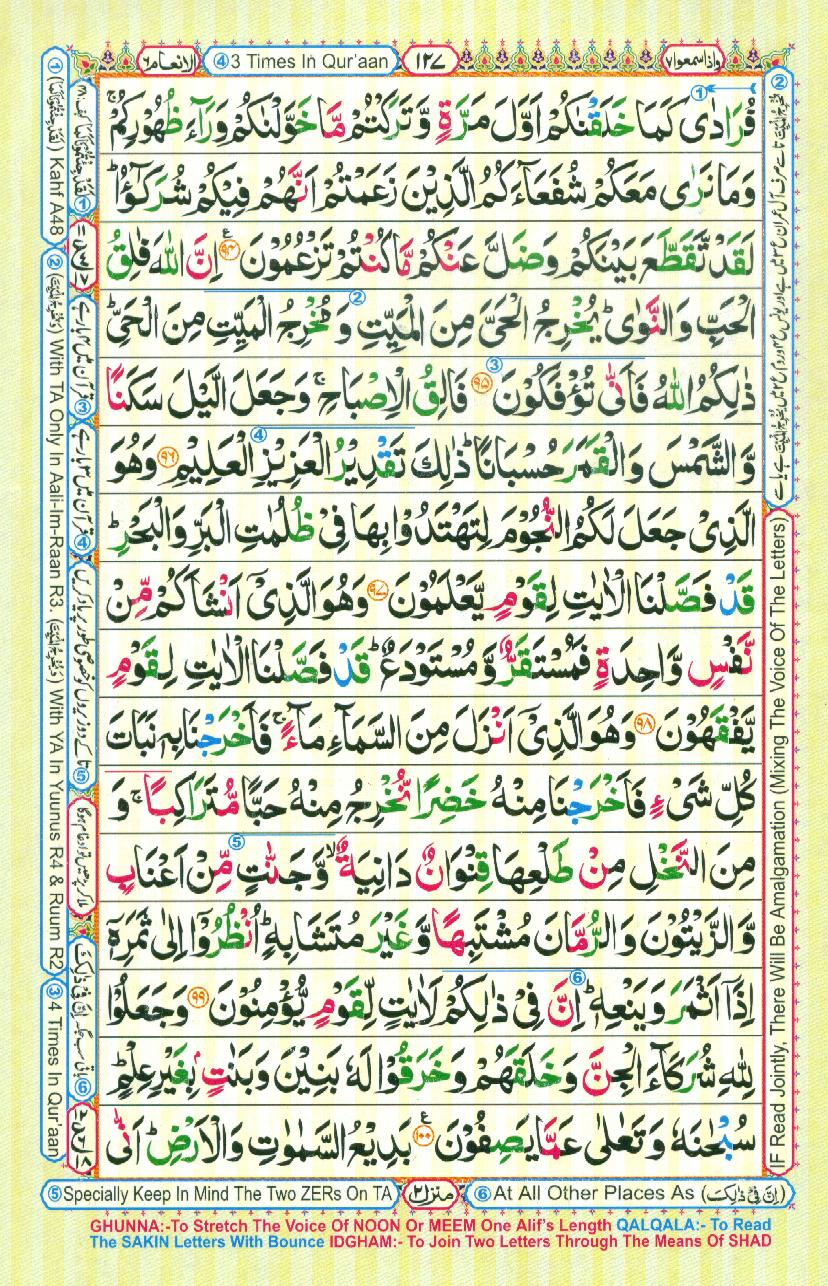 الانعام ٦
④ 3 Times In Qur'aan
١٢٧
واذاسمعوا ٧
فُرَادٰى كَمَا خَلَقْنٰكُمْ اَوَّلَ مَرَّةٍ وَّ تَرَكْتُمْ مَّا خَوَّلْنٰكُمْ وَرَآءَ ظُهُوْرِكُمْ ۚ
وَمَا نَرٰى مَعَكُمْ شُفَعَآءَكُمُ الَّذِيْنَ زَعَمْتُمْ اَنَّهُمْ فِيْكُمْ شُرَكٰٓؤُا ؕ
لَقَدْ تَّقَطَّعَ بَيْنَكُمْ وَضَلَّ عَنْكُمْ مَّا كُنْتُمْ تَزْعُمُوْنَ ۹۴ اِنَّ اللّٰهَ فَالِقُ
الْحَبِّ وَالنَّوٰى ؕ يُخْرِجُ الْحَىَّ مِنَ الْمَيِّتِ وَ مُخْرِجُ الْمَيِّتِ مِنَ الْحَىِّ ؕ
ذٰلِكُمُ اللّٰهُ فَاَنّٰى تُؤْفَكُوْنَ ۹۵ فَالِقُ الْاِصْبَاحِ ۚ وَجَعَلَ الَّيْلَ سَكَنًا
وَّالشَّمْسَ وَالْقَمَرَ حُسْبَانًا ؕ ذٰلِكَ تَقْدِيْرُ الْعَزِيْزِ الْعَلِيْمِ ۹۶ وَهُوَ
الَّذِىْ جَعَلَ لَكُمُ النُّجُوْمَ لِتَهْتَدُوْا بِهَا فِىْ ظُلُمٰتِ الْبَرِّ وَالْبَحْرِ ؕ
قَدْ فَصَّلْنَا الْاٰيٰتِ لِقَوْمٍ يَّعْلَمُوْنَ ۹۷ وَهُوَ الَّذِىْٓ اَنْشَاَكُمْ مِّنْ
نَّفْسٍ وَّاحِدَةٍ فَمُسْتَقَرٌّ وَّ مُسْتَوْدَعٌ ؕ قَدْ فَصَّلْنَا الْاٰيٰتِ لِقَوْمٍ
يَّفْقَهُوْنَ ۹۸ وَهُوَ الَّذِىْٓ اَنْزَلَ مِنَ السَّمَآءِ مَآءً ۚ فَاَخْرَجْنَا بِهٖ نَبَاتَ
كُلِّ شَىْءٍ فَاَخْرَجْنَا مِنْهُ خَضِرًا نُّخْرِجُ مِنْهُ حَبًّا مُّتَرَاكِبًا ۚ وَ
مِنَ النَّخْلِ مِنْ طَلْعِهَا قِنْوَانٌ دَانِيَةٌ ۙ وَّجَنّٰتٍ مِّنْ اَعْنَابٍ
وَّالزَّيْتُوْنَ وَالرُّمَّانَ مُشْتَبِهًا وَّغَيْرَ مُتَشَابِهٍ ؕ اُنْظُرُوْٓا اِلٰى ثَمَرِهٖٓ
اِذَآ اَثْمَرَ وَيَنْعِهٖ ؕ اِنَّ فِىْ ذٰلِكُمْ لَاٰيٰتٍ لِّقَوْمٍ يُّؤْمِنُوْنَ ۹۹ وَجَعَلُوْا
لِلّٰهِ شُرَكَآءَ الْجِنَّ وَخَلَقَهُمْ وَخَرَقُوْا لَهٗ بَنِيْنَ وَبَنٰتٍۢ بِغَيْرِ عِلْمٍ ؕ
سُبْحٰنَهٗ وَتَعٰلٰى عَمَّا يَصِفُوْنَ ۱۰۰ بَدِيْعُ السَّمٰوٰتِ وَالْاَرْضِ ؕ اَنّٰى
Kahf A48
② With TA Only In Aali-Im-Raan R3. With YA In Yuunus R4 & Ruum R2
③ 4 Times In Qur'aan
IF Read Jointly, There Will Be Amalgamation (Mixing The Voice Of The Letters)
⑤ Specially Keep In Mind The Two ZERs On TA
منزل ٢
⑥ At All Other Places As (اِنَّ فِىْ ذٰلِكَ)
GHUNNA:-To Stretch The Voice Of NOON Or MEEM One Alif's Length QALQALA:- To Read
The SAKIN Letters With Bounce IDGHAM:- To Join Two Letters Through The Means Of SHAD